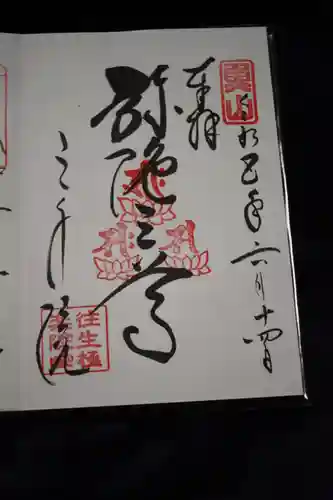 奉拝
令和己亥年六月十四日
弥陀三尊
三千院
往生極
楽院印